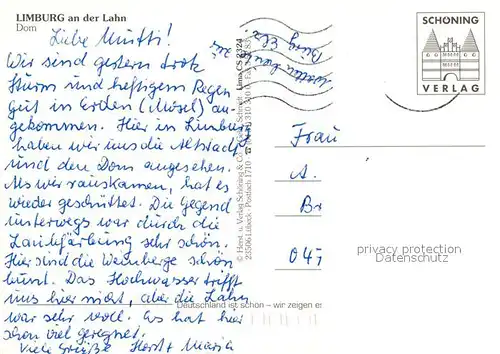 LIMBURG an der Lahn
Dom
Liebe Mutti!
Wir sind gestern trotz
Sturm und heftigem Regen
gut in Erden (Mosel) an-
gekommen. Hier in Limburg
haben wir uns die Altstadt
und den Dom angesehen.
Als wir rauskamen, hat es
wieder geschüttet. Die Gegend
unterwegs war durch die
Laubfärbung sehr schön.
Hier sind die Weinberge schön
bunt. Das Hochwasser trifft
uns hier nicht, aber die Lahn
war sehr voll. Es hat hier
schon viel geregnet.
Viele Grüße Horst + Maria
Burg Elz
© Herst. u. Verlag Schöning & Co
23506 Lübeck · Postfach 1710
Deutschland ist schön – wir zeigen es
SCHÖNING
VERLAG
Frau
A.
Br
047
privacy protection
Datenschutz